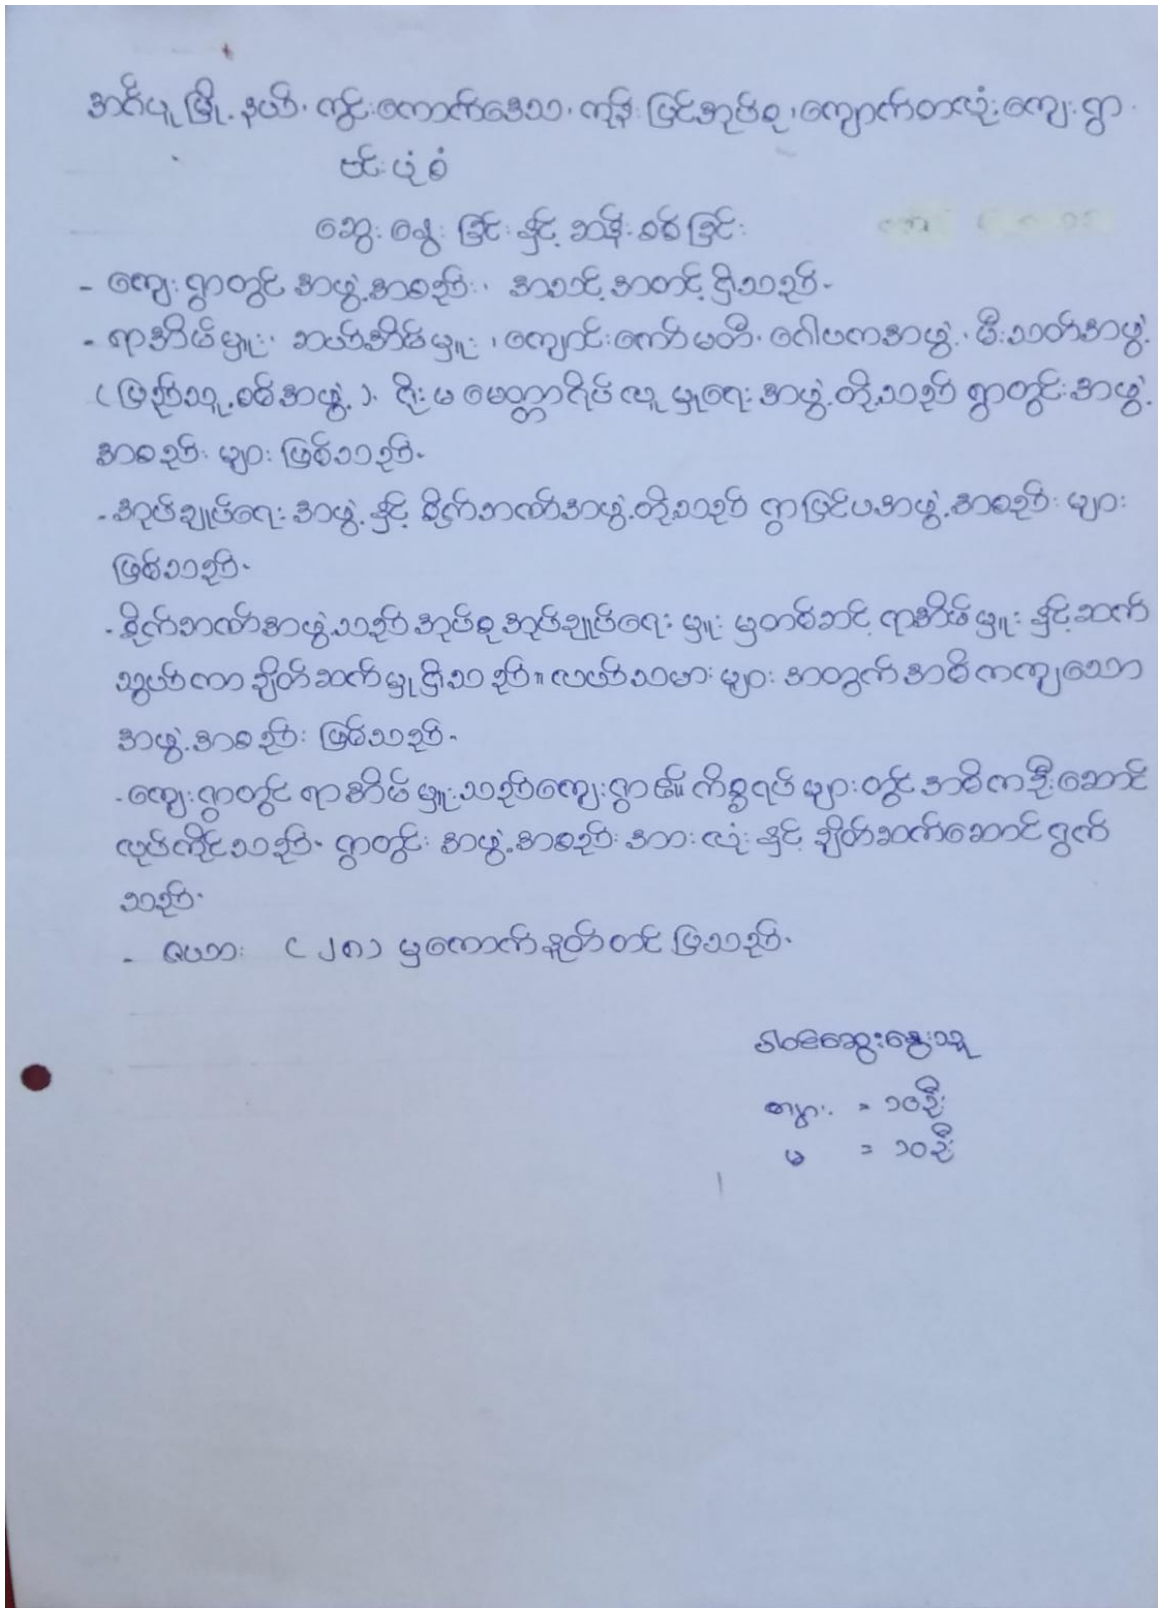 အင်္ဂပူမြို့နယ်၊ ကွင်းကောက်ဒေသ၊ ကုန်းပြင်အုပ်စု၊ ကျောက်တလုံးကျေးရွာ
ဗင်းပုံစံ
ဆွေးနွေးခြင်းနှင့် ဆန်းစစ်ခြင်း
- ကျေးရွာတွင် အဖွဲ့အစည်း၊ အသင့်အတင့်ရှိသည်။
- ရာအိမ်မှူး၊ ဆယ်အိမ်မှူး၊ ကျောင်းကော်မတီ၊ ဂေါပကအဖွဲ့၊ မီးသတ်အဖွဲ့
(ပြည်သူ့စစ်အဖွဲ့)၊ ရိုးမမေတ္တာရိပ်လူမှုရေးအဖွဲ့တို့သည် ရွာတွင်းအဖွဲ့
အစည်းများ ဖြစ်သည်။
- အုပ်ချုပ်ရေးအဖွဲ့နှင့် စိုက်ဘဏ်အဖွဲ့တို့သည် ရွာပြင်ပအဖွဲ့အစည်းများ
ဖြစ်သည်။
- စိုက်ဘဏ်အဖွဲ့သည် အုပ်စုအုပ်ချုပ်ရေးမှူးမှတစ်ဆင့် ရာအိမ်မှူးနှင့်ဆက်
သွယ်ကာ ချိတ်ဆက်မှုရှိသည်။ လယ်သမားများအတွက် အဓိကကျသော
အဖွဲ့အစည်းဖြစ်သည်။
- ကျေးရွာတွင် ရာအိမ်မှူးသည်ကျေးရွာ၏ ကိစ္စရပ်များတွင် အဓိကဦးဆောင်
လုပ်ကိုင်သည်။ ရွာတွင်းအဖွဲ့အစည်းအားလုံးနှင့် ချိတ်ဆက်ဆောင်ရွက်
သည်။
- ဇယား (၂၈) မှကောက်နှုတ်တင်ပြသည်။
ပါဝင်ဆွေးနွေးသူ
ကျား = ၁၀ဦး
မ = ၁၀ဦး